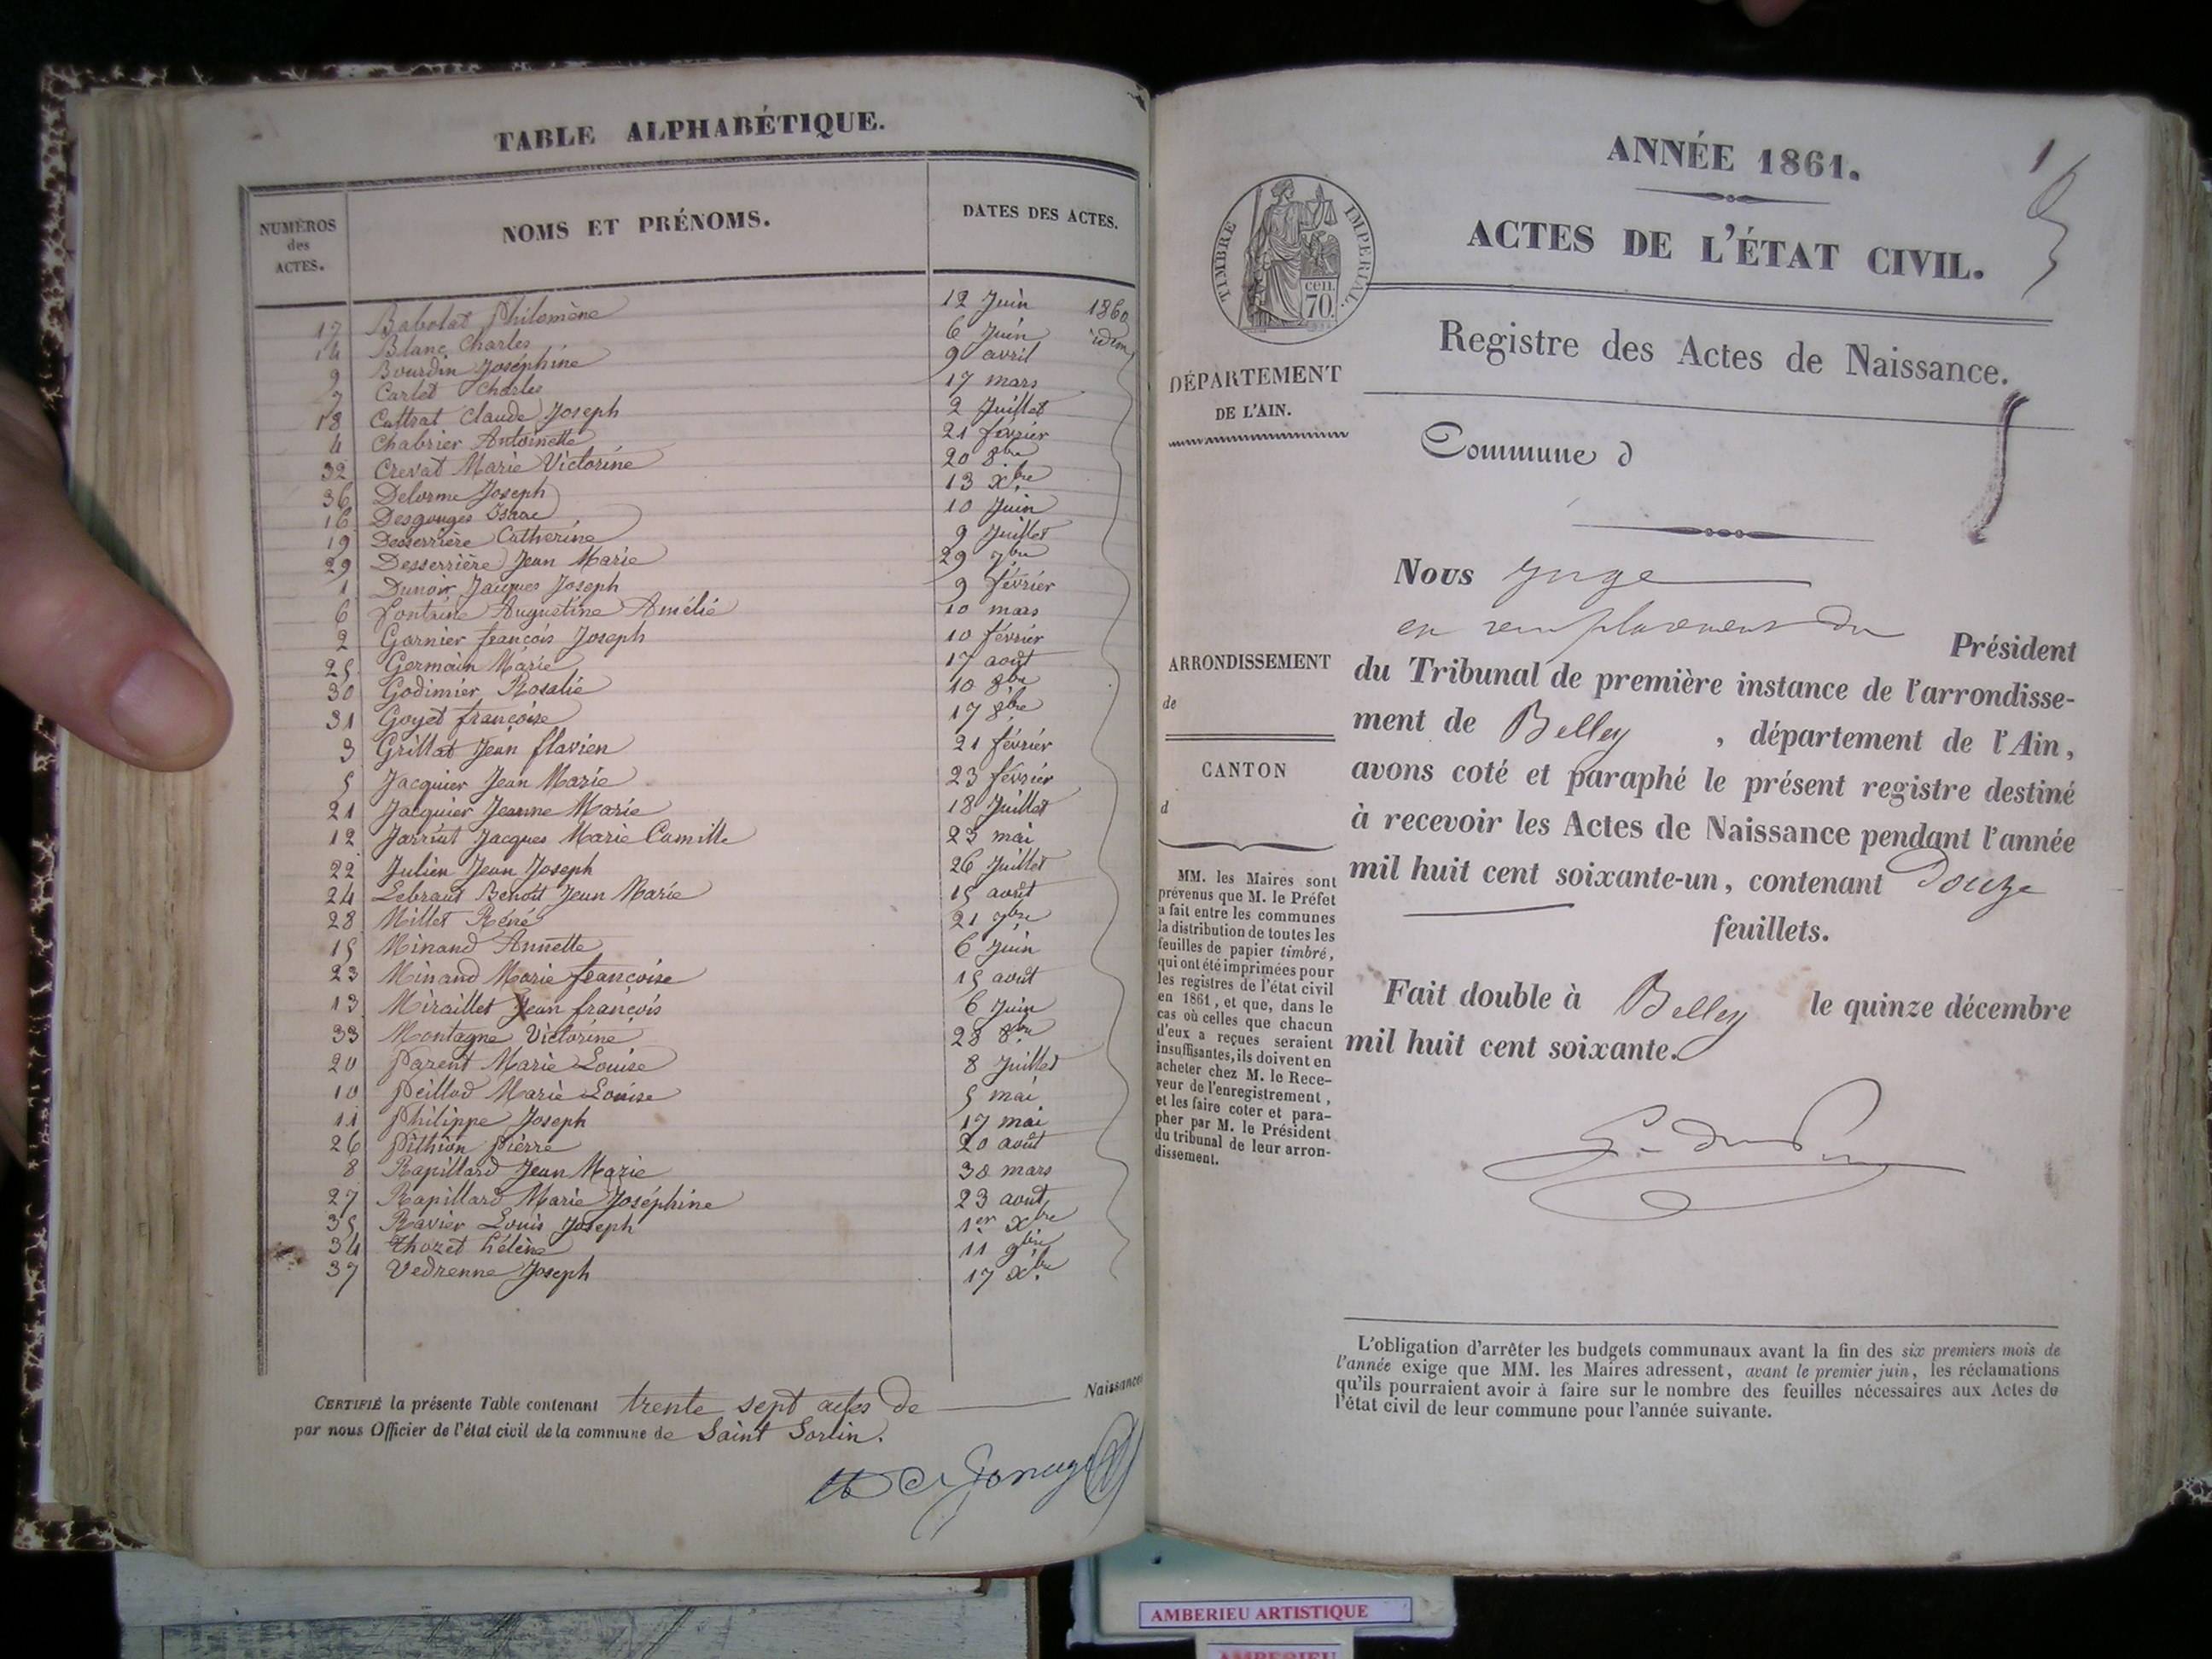 TABLE ALPHABÉTIQUE.
NUMÉROS des ACTES. NOMS ET PRÉNOMS. DATES DES ACTES.
17 Babolat Philomène 12 Juin 1860
14 Blanc Charles 6 Juin idem
9 Bourdin Joséphine 9 avril
7 Carlet Charles 17 mars
18 Cattrat Claude Joseph 2 Juillet
4 Chabrier Antoinette 21 février
32 Crevat Marie Victorine 20 8bre
36 Delorme Joseph 13 Xbre
16 Desgouges Isaac 10 Juin
19 Desserrière Catherine 9 Juillet
29 Desserrière Jean Marie 29 7bre
1 Dunoir Jacques Joseph 9 février
6 Fontaine Augustine Amélie 10 mars
2 Garnier françois Joseph 10 février
25 Germain Marie 17 août
30 Godimier Rosalie 10 8bre
31 Goyet françoise 17 8bre
3 Grillat Jean flavien 21 février
5 Jacquier Jean Marie 23 février
21 Jacquier Jeanne Marie 18 Juillet
12 Jarriut Jacques Marie Camille 23 mai
22 Julien Jean Joseph 26 Juillet
24 Lebraut Benoît Jean Marie 15 août
28 Millet Réné 21 7bre
15 Minand Annette 6 Juin
23 Minand Marie françoise 15 août
13 Miraillet Jean françois 6 Juin
33 Montagne Victorine 28 8bre
20 Parent Marie Louise 8 Juillet
10 Peillod Marie Louise 5 mai
11 Philippe Joseph 17 mai
26 Pithion pierre 20 août
8 Rapillard Jean Marie 30 mars
27 Rapillard Marie Joséphine 23 août
35 Ravier Louis Joseph 1er Xbre
34 Thozet hélène 11 9bre
37 Vedrenne Joseph 17 Xbre
CERTIFIÉ la présente Table contenant trente sept actes de Naissances
par nous Officier de l'état civil de la commune de Saint Sorlin.
ANNÉE 1861.
1
ACTES DE L'ÉTAT CIVIL.
TIMBRE IMPERIAL.
cen.
70.
Registre des Actes de Naissance.
DÉPARTEMENT
DE L'AIN.
Commune d
Nous Juge
en remplacement du Président
du Tribunal de première instance de l'arrondisse-
ment de Belley , département de l'Ain,
avons coté et paraphé le présent registre destiné
à recevoir les Actes de Naissance pendant l'année
mil huit cent soixante-un, contenant Douze
feuillets.
Fait double à Belley le quinze décembre
mil huit cent soixante.
ARRONDISSEMENT
de
CANTON
d
MM. les Maires sont
prévenus que M. le Préfet
a fait entre les communes
la distribution de toutes les
feuilles de papier timbré,
qui ont été imprimées pour
les registres de l'état civil
en 1861, et que, dans le
cas où celles que chacun
d'eux a reçues seraient
insuffisantes, ils doivent en
acheter chez M. le Rece-
veur de l'enregistrement,
et les faire coter et para-
pher par M. le Président
du tribunal de leur arron-
dissement.
L'obligation d'arrêter les budgets communaux avant la fin des six premiers mois de
l'année exige que MM. les Maires adressent, avant le premier juin, les réclamations
qu'ils pourraient avoir à faire sur le nombre des feuilles nécessaires aux Actes de
l'état civil de leur commune pour l'année suivante.
AMBERIEU ARTISTIQUE
AMBERIEU